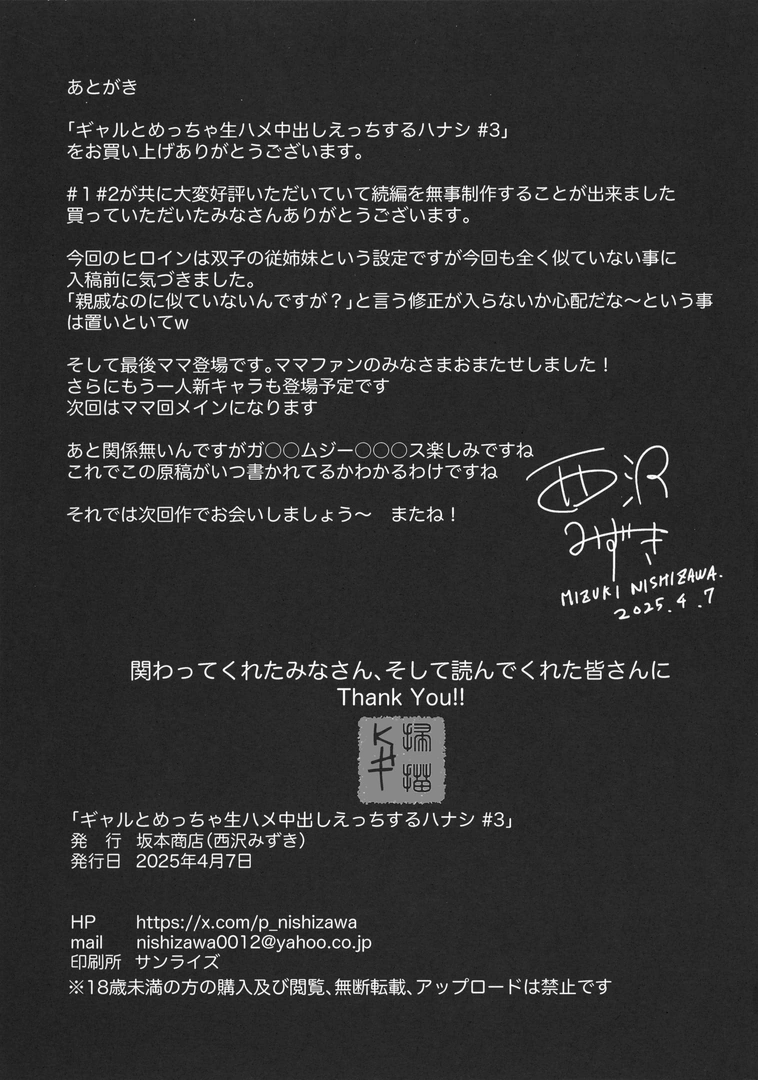 あとがき
「ギャルとめっちゃ生ハメ中出しえっちするハナシ #3」
をお買い上げありがとうございます。
#１#2が共に大変好評いただいていて続編を無事制作することが出来ました
買っていただいたみなさんありがとうございます。
今回のヒロインは双子の従姉妹という設定ですが今回も全く似ていない事に
入稿前に気づきました。
「親戚なのに似ていないんですが？」と言う修正が入らないか心配だな〜という事
は置いといてw
そして最後ママ登場です。ママファンのみなさまおまたせしました！
さらにもう一人新キャラも登場予定です
次回はママ回メインになります
あと関係無いんですがガ○○ムジー○○○ス楽しみですね
これでこの原稿がいつ書かれてるかわかるわけですね
それでは次回作でお会いしましょう〜　またね！
西沢
みずき
MIZUKI NISHIZAWA.
2025.4.7
関わってくれたみなさん、そして読んでくれた皆さんに
Thank You!!
「ギャルとめっちゃ生ハメ中出しえっちするハナシ #3」
発　行　坂本商店（西沢みずき）
発行日　2025年4月7日
HP　https://x.com/p_nishizawa
mail　nishizawa0012@yahoo.co.jp
印刷所　サンライズ
※18歳未満の方の購入及び閲覧、無断転載、アップロードは禁止です